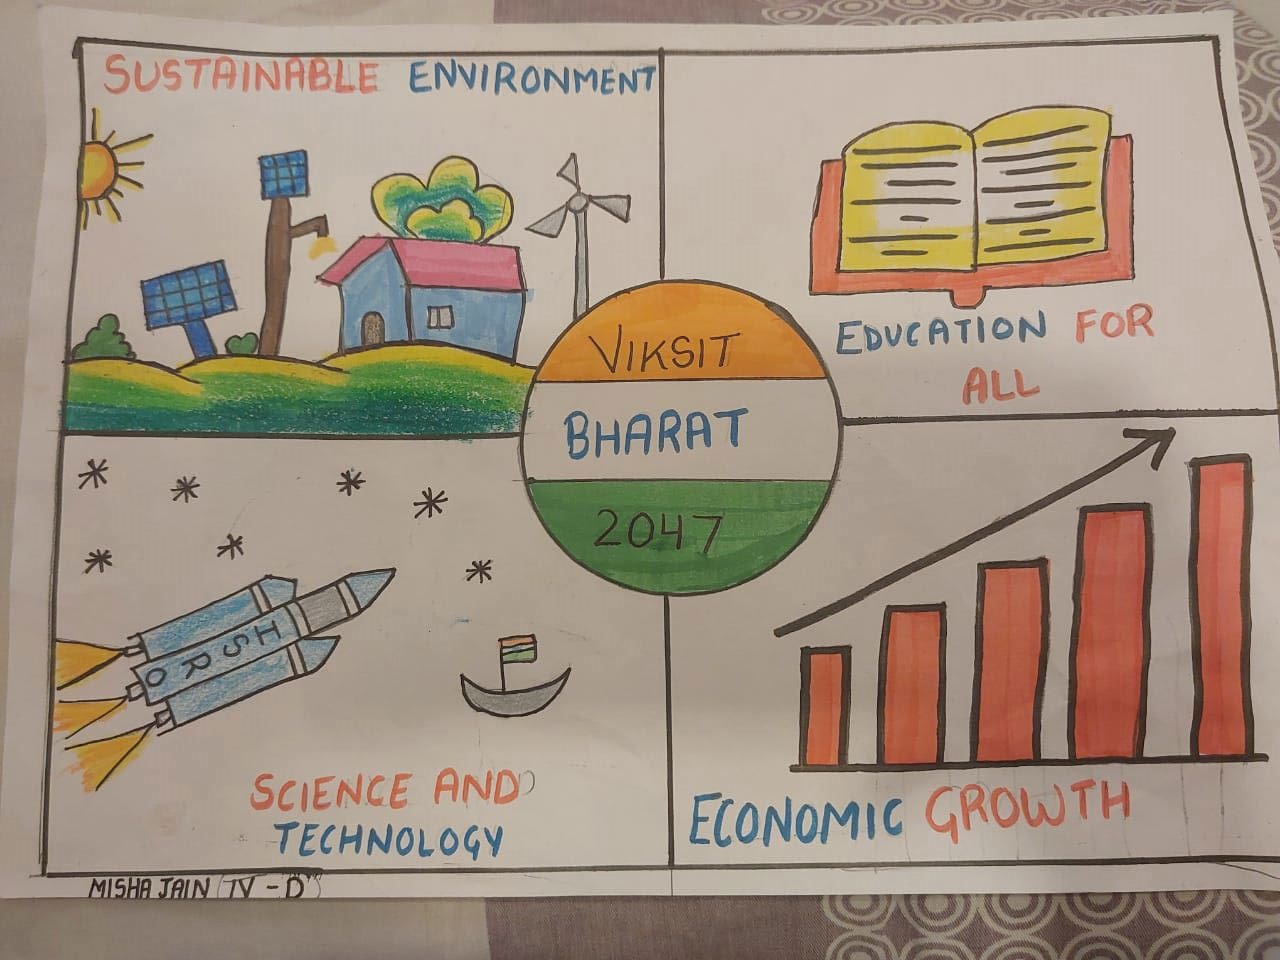 SUSTAINABLE ENVIRONMENT
EDUCATION FOR
ALL
VIKSIT
BHARAT
2047
ISRO
SCIENCE AND
TECHNOLOGY
ECONOMIC GROWTH
MISHA JAIN (IV - "D")